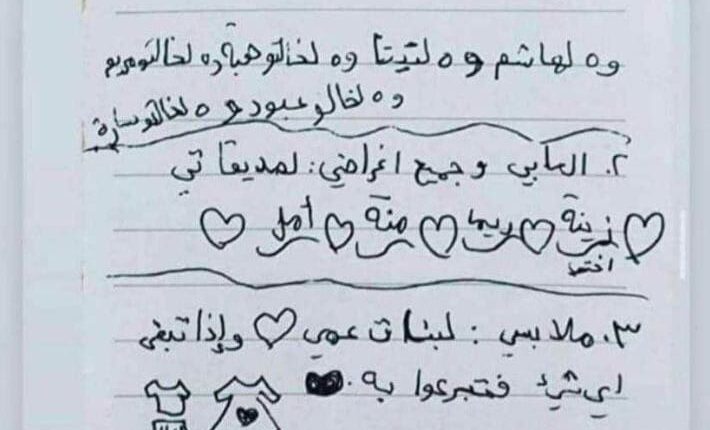 ٥ه لهاشم و ٥ه لتيتا ٥ه لخالتو هبة ٥ه لخالتو مريم
٥ه لخالو عبود و ٥ه لخالتو سارة
٢. العابي و جميع اغراضي: لصديقاتي
زينة ريما منة أمل
اختي
٣. ملابسي: لبنات عمي وإذا تبقى
اي شيء فتبرعوا به.